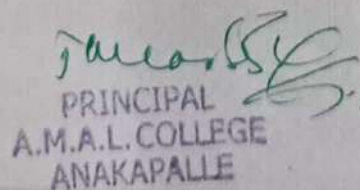 PRINCIPAL
A.M.A.L. COLLEGE
ANAKAPALLE